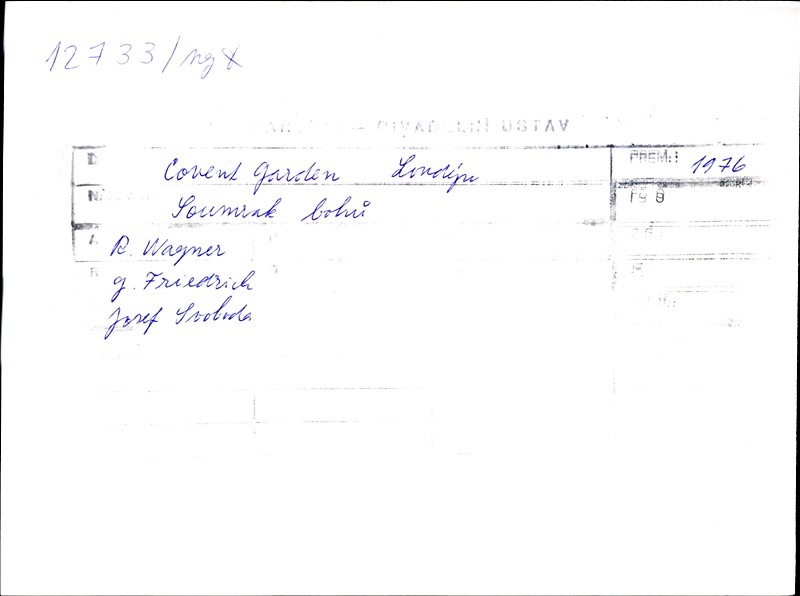 12733/ng
DIVADELNÍ ÚSTAV
Covent Garden Londýn PREM.: 1976
Soumrak bohů
R. Wagner
g. Friedrich
Josef Svoboda